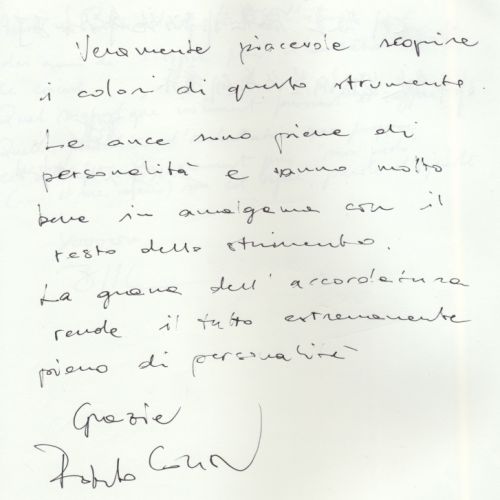 Veramente piacevole scoprire
i colori di questo strumento.
Le ance sono piene di
personalità e vanno molto
bene in amalgama con il
resto dello strumento.
La grana dell'accordatura
rende il tutto estremamente
pieno di personalità
Grazie